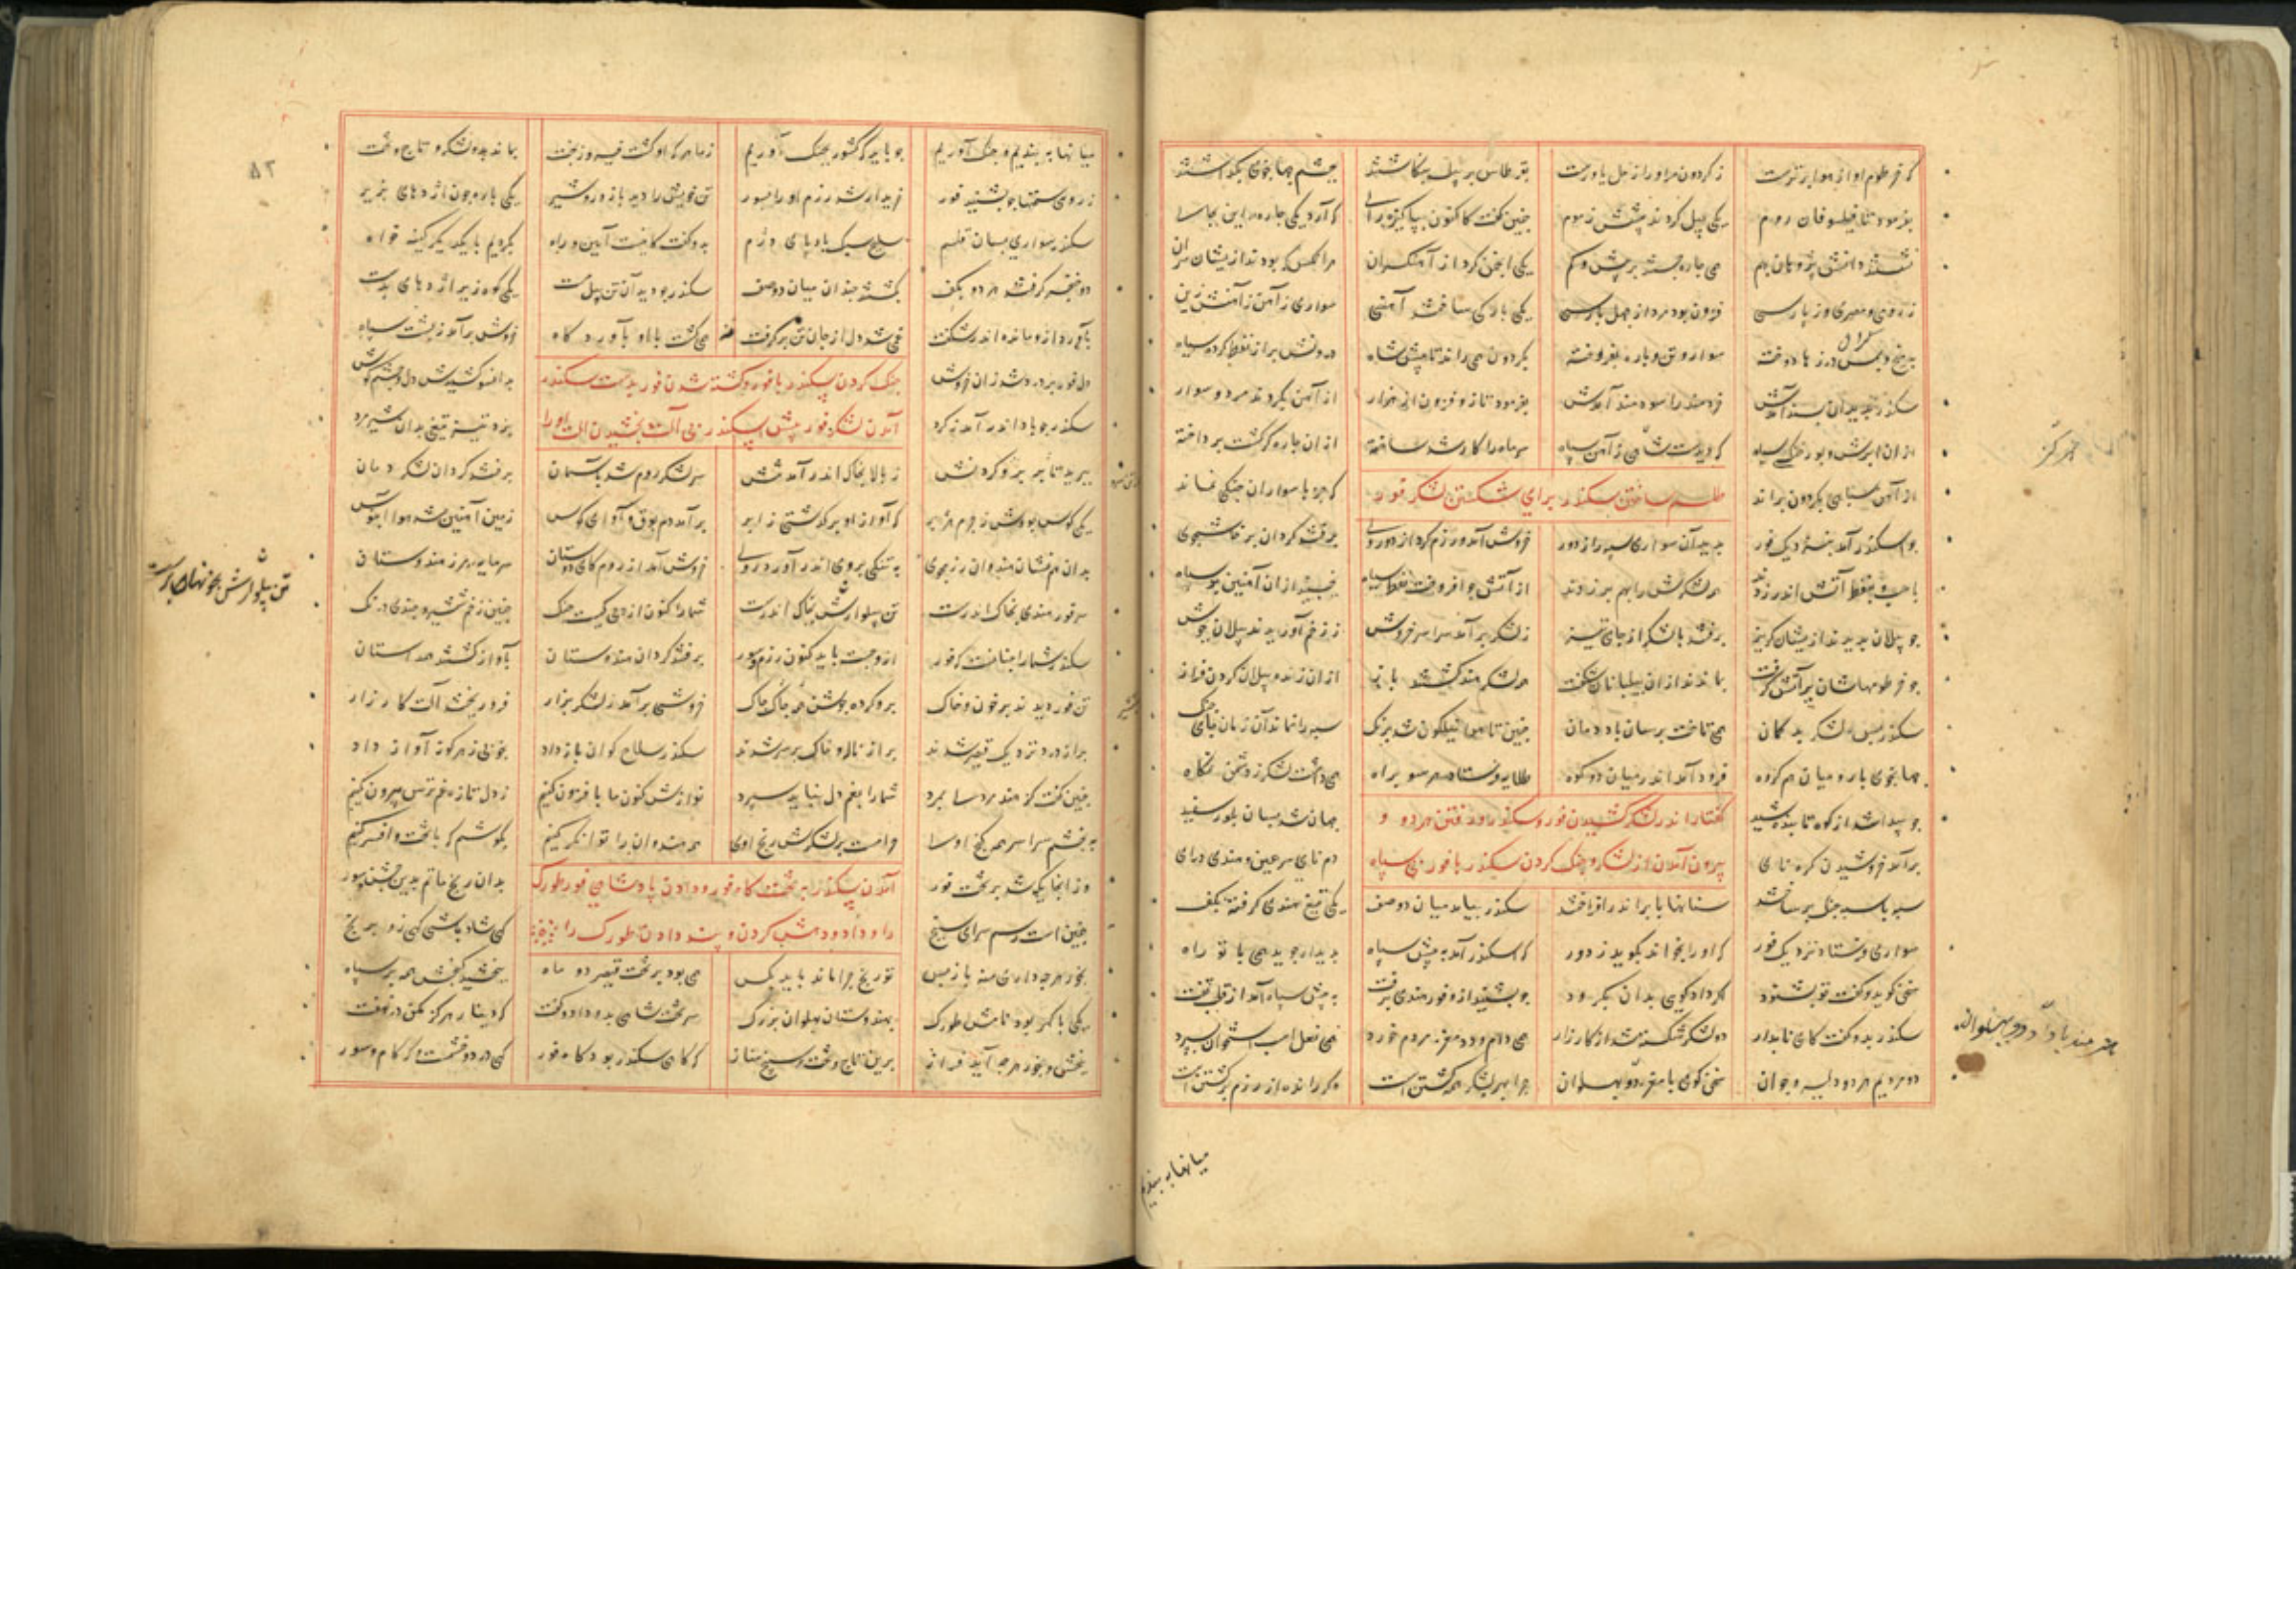 که خرطوم او از هوا برترست ز گردون مر او را ز حل یاورست بقرطاس بر پیل بنگاشتند بچشم جهانجوی بگذاشتند
بفرمود تا فیلسوفان روم یکی پیل کردند پیشش ز موم چنین گفت کاکنون بپاکیزه رای که آرد یکی چاره این بجا
نشستند دانش پژوهان بهم همی چاره جستند بر بیش و کم یکی انجمن کرد از آهنگران هرانکس که بود از ایشان سران
ز رومی و مصری و از پارسی فزون بود مرد از چهل بار سی یکی بارگی ساختند آهنین سواری ز آهن ز آهنش زین
بمیخ و بمس درزها دوخته سوار و تن و باره بفروخته بگردون همی راند تا پیش شاه درونش پر از نفط کرده سیاه
سکندر بدید آن پسند آمدش خردمند را سودمند آمدش بفرمود تا زو فزون از هزار از آهن بکردند مرد و سوار
از آن ابرش و بور و خنگ سیاه که دیدست شاهی ز آهن سپاه سر ماه را کار شد ساخته از آن چاره گر گشت پرداخته
از آهن سپاهی بگردون براند طلسم ساختن سکندر برای شکستن لشکر فور که جز با سواران جنگی نماند
چو اسکندر آمد بنزدیک فور بدید آن سواری سپه را ز دور خروش آمد و رزم کرد از دو روی برفتند گردان پرخاشجوی
باسپ و بنفط آتش اندر زدند همه لشکرش را بهم بر زدند از آتش چو افروخت نفط سیاه بجنبید از آن آهنین بد سپاه
چو پیلان بدیدند از ایشان گریز برفتند با لشکر از جای تیز ز لشکر برآمد سراسر خروش ز زخم آوریدند پیلان بجوش
چو خرطومهاشان پر آتش گرفت بماندند از آن پیلبانان شگفت همه لشکر هند گشتند باز از آن زنده پیلان گردن فراز
سکندر پس لشکر بدگمان همی تاخت برسان باد دمان چنین تا هوا نیلگون شد برنگ سپه را نماند آن زمان جای جنگ
جهانجوی با رومیان هم گروه فرود آمد اندر میان دو کوه طلایه فرستاد هر سو براه همی داشت لشکر ز دشمن نگاه
چو پیدا شد از کوه تابنده شید گفتار اندر لشکر کشیدن فور و سکندر و رفتن هر دو و جهان شد بسان بلور سفید
برآمد خروشیدن کره نای بیرون آمدن از لشکر و جنگ کردن سکندر با فور بی سپاه دم نای سرغین و هندی درای
سپه با سپه جنگ برساختند سنانها بابر اندر افراختند سکندر بیامد میان دو صف یکی تیغ هندی گرفته بکف
سواری فرستاد نزدیک فور که او را بخواند بگوید ز دور که اسکندر آمد به پیش سپاه بدیدار جوید همی با تو راه
سخن گوید و گفت تو بشنود اگر داد گویی بدان بگرود چو بشنید ازو فور هندی برفت به پیش سپاه آمد از قلب تفت
سکندر بدو گفت کای نامدار دو لشکر شکسته شد از کارزار همی دام و دد مغز مردم خورد همی نعل اسب استخوان بسپرد
دو مردیم هر دو دلیر و جوان سخن گوی با مغز دو پهلوان چرا بهر لشکر همه کشتن است وگر زنده از رزم برگشتن است
هنرمند باداد دو پهلوان
میانها به بندیم
میانها به بندیم و جنگ آوریم چو باید که کشور بچنگ آوریم ز ما هر که او گشت فیروز بخت بماند بدو لشکر و تاج و تخت
ز رومی سخنها چو بشنید فور خریدار شد رزم او را بسور تن خویش را دید با زور شیر یکی باره چون اژدهای دلیر
سکندر سواری بسان قلم سلیح سبک بادپای دژم بدو گفت کاینت آیین و راه بگردیم با یکدیگر کینه خواه
دو خنجر گرفتند هر دو بکف بگشتند چندان میان دو صف سکندر چو دید آن تن پیل مست یکی کوه زیر اژدهای بدست
بآورد ازو مانده اندر شگفت غمی شد دل از جان تن برگرفت همی گشت با او بآوردگاه خروشی برآمد ز پشت سپاه
دل فور پر درد شد زان خروش جنگ کردن سکندر با فور و کشته شدن فور بدست سکندر بدانسو کشیدش دل و چشم و گوش
سکندر چو باد اندر آمد ز گرد آمدن لشکر فور پیش اسکندر بی آلت بخشیدن آلت او را بزد تیغ تیزی بدان شیر مرد
ببرید تا بر بر و گردنش ز بالا بخاک اندر آمد تنش سر لشکر روم شد بآسمان برفتند گردان لشکر دمان
یکی کوس بودش ز چرم هژبر که آواز او برگذشتی ز ابر برآمد دم بوق و آوای کوس زمین آهنین شد هوا آبنوس
بدان هم نشان هندوان رزمجوی به تنگی بروی اندر آورد روی خروش آمد از روم کای دوستان سرمایه مرز هندوستان
سر فور هندی بخاک اندرست تن پیلوارش بخاک اندرست شما را کنون از پی کیست جنگ چنین زخم شمشیر و چندی درنگ
سکندر شما را چنانست که فور ازو جست باید کنون رزم و سور برفتند گردان هندوستان بآواز گشتند همداستان
تن فور دیدند پر خون و خاک برو کرده جوشن همه چاک چاک خروشی برآمد ز لشکر بزار فرو ریختند آلت کارزار
پر از درد نزدیک قیصر شدند پر از ناله و خاک بر سر شدند سکندر سلاح گوان باز داد بخوبی ز هرگونه آواز داد
چنین گفت کز هند مردی بمرد شما را بغم دل نباید سپرد نوازش کنون ما بافزون کنیم ز دل تازه غم ترس بیرون کنیم
به بخشم سراسر همه گنج اوی حرامست بر لشکرش رنج اوی همه هندوان را توانگر کنیم بکوشم که با تخت و افسر کنیم
وز آنجایگه شد بر تخت فور آمدن سکندر به تختگاه فور و دادن پادشاهی فور طورگ بدان رنج ماتم بدین جشن سور
چنین است رسم سرای سپنج را و داد و دهش کردن و پند دادن طورگ را گهی شاد باشی گهی زو برنج
بخور هرچه داری منه بازپس تو رنجی چرا ماند باید بکس همی بود بر تخت قیصر دو ماه ببخشید گنجش همه بر سپاه
یکی با گهر بود نامش طورگ بهندوستان پهلوان بزرگ سر تخت شاهی بدو داد و گفت که دینار هرگز مکن در نهفت
ببخش و بخور هرچه آید فراز برین تاج و تخت و سپنجی مناز که گاهی سکندر بود گاه فور گهی درد و خشمست و گه کام و سور